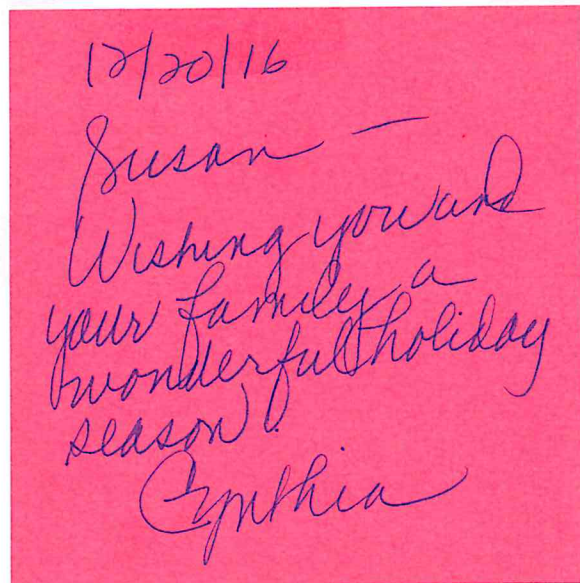 12/20/16
Susan —
Wishing you and
your family a
wonderful holiday
season!
Cynthia